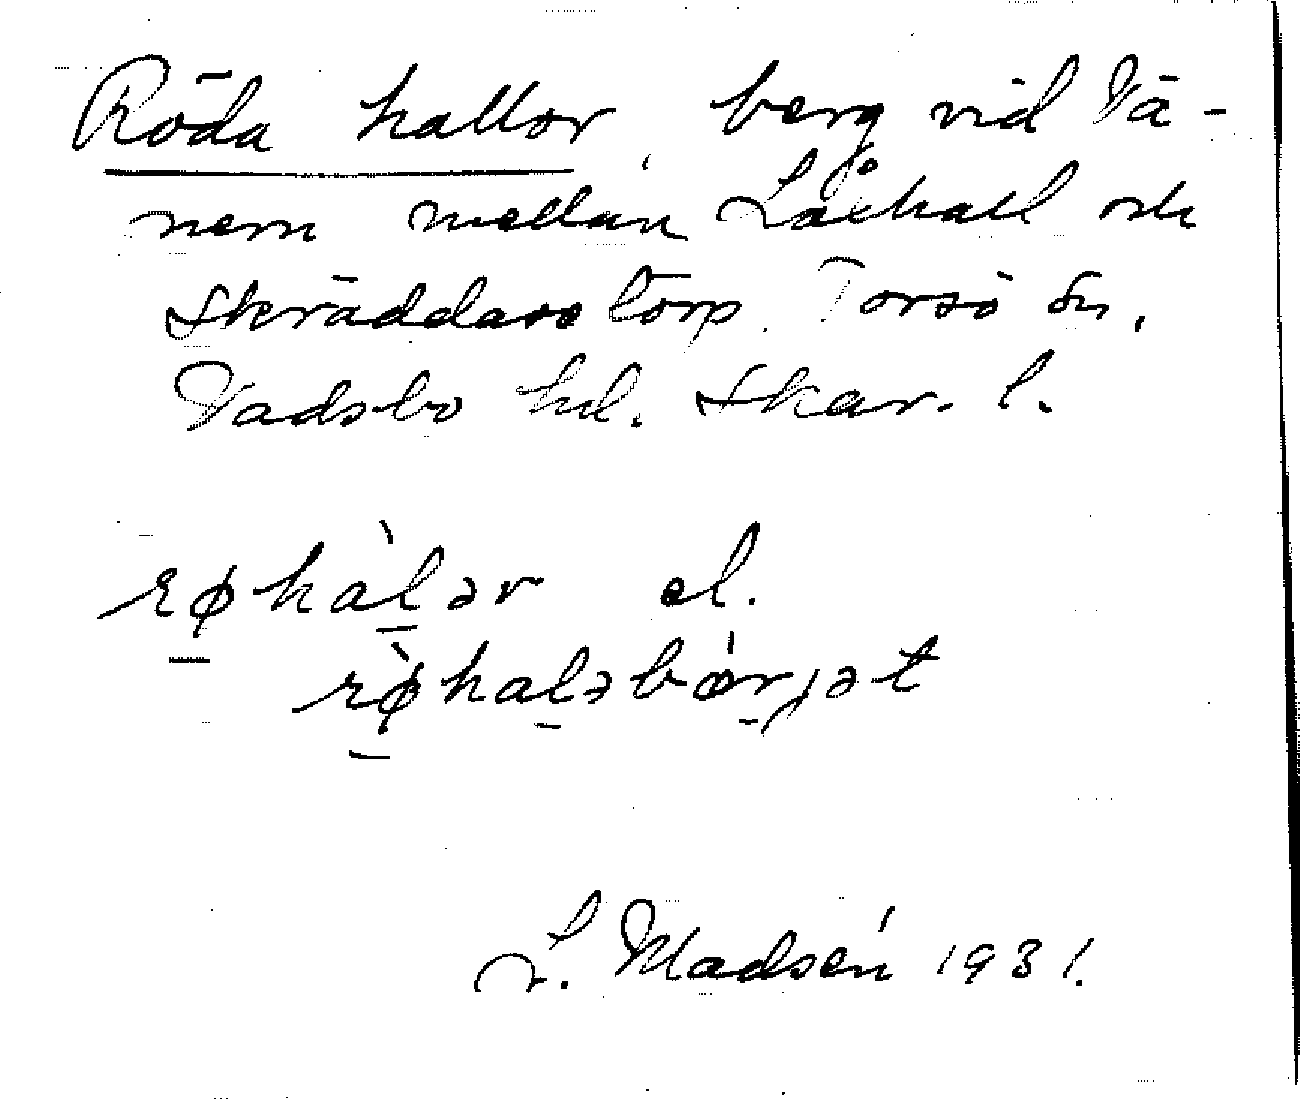 Röda hallor, berg vid Vä-
nern mellan Låkhall och
Skräddaretorp. Torsö sn,
Vadsbo hd. Skar. l.
rø̀hàlər el.
rø̀haləbǿrjət
L. Madsén 1931.